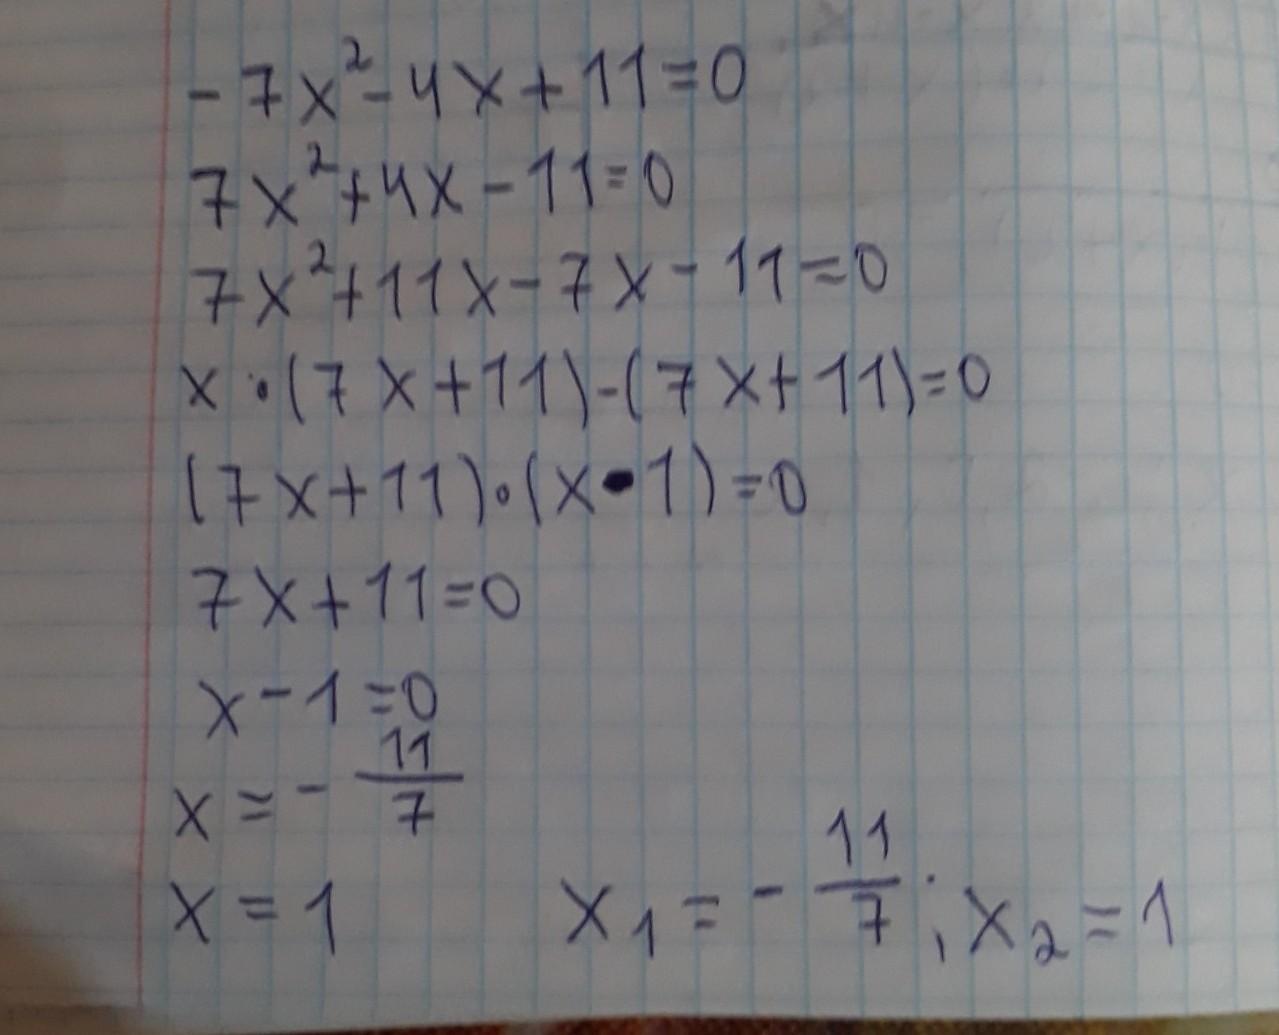 -7x²-4x+11=0
7x²+4x-11=0
7x²+11x-7x-11=0
x·(7x+11)-(7x+11)=0
(7x+11)·(x-1)=0
7x+11=0
x-1=0
x=-11/7
x=1
x₁=-11/7; x₂=1